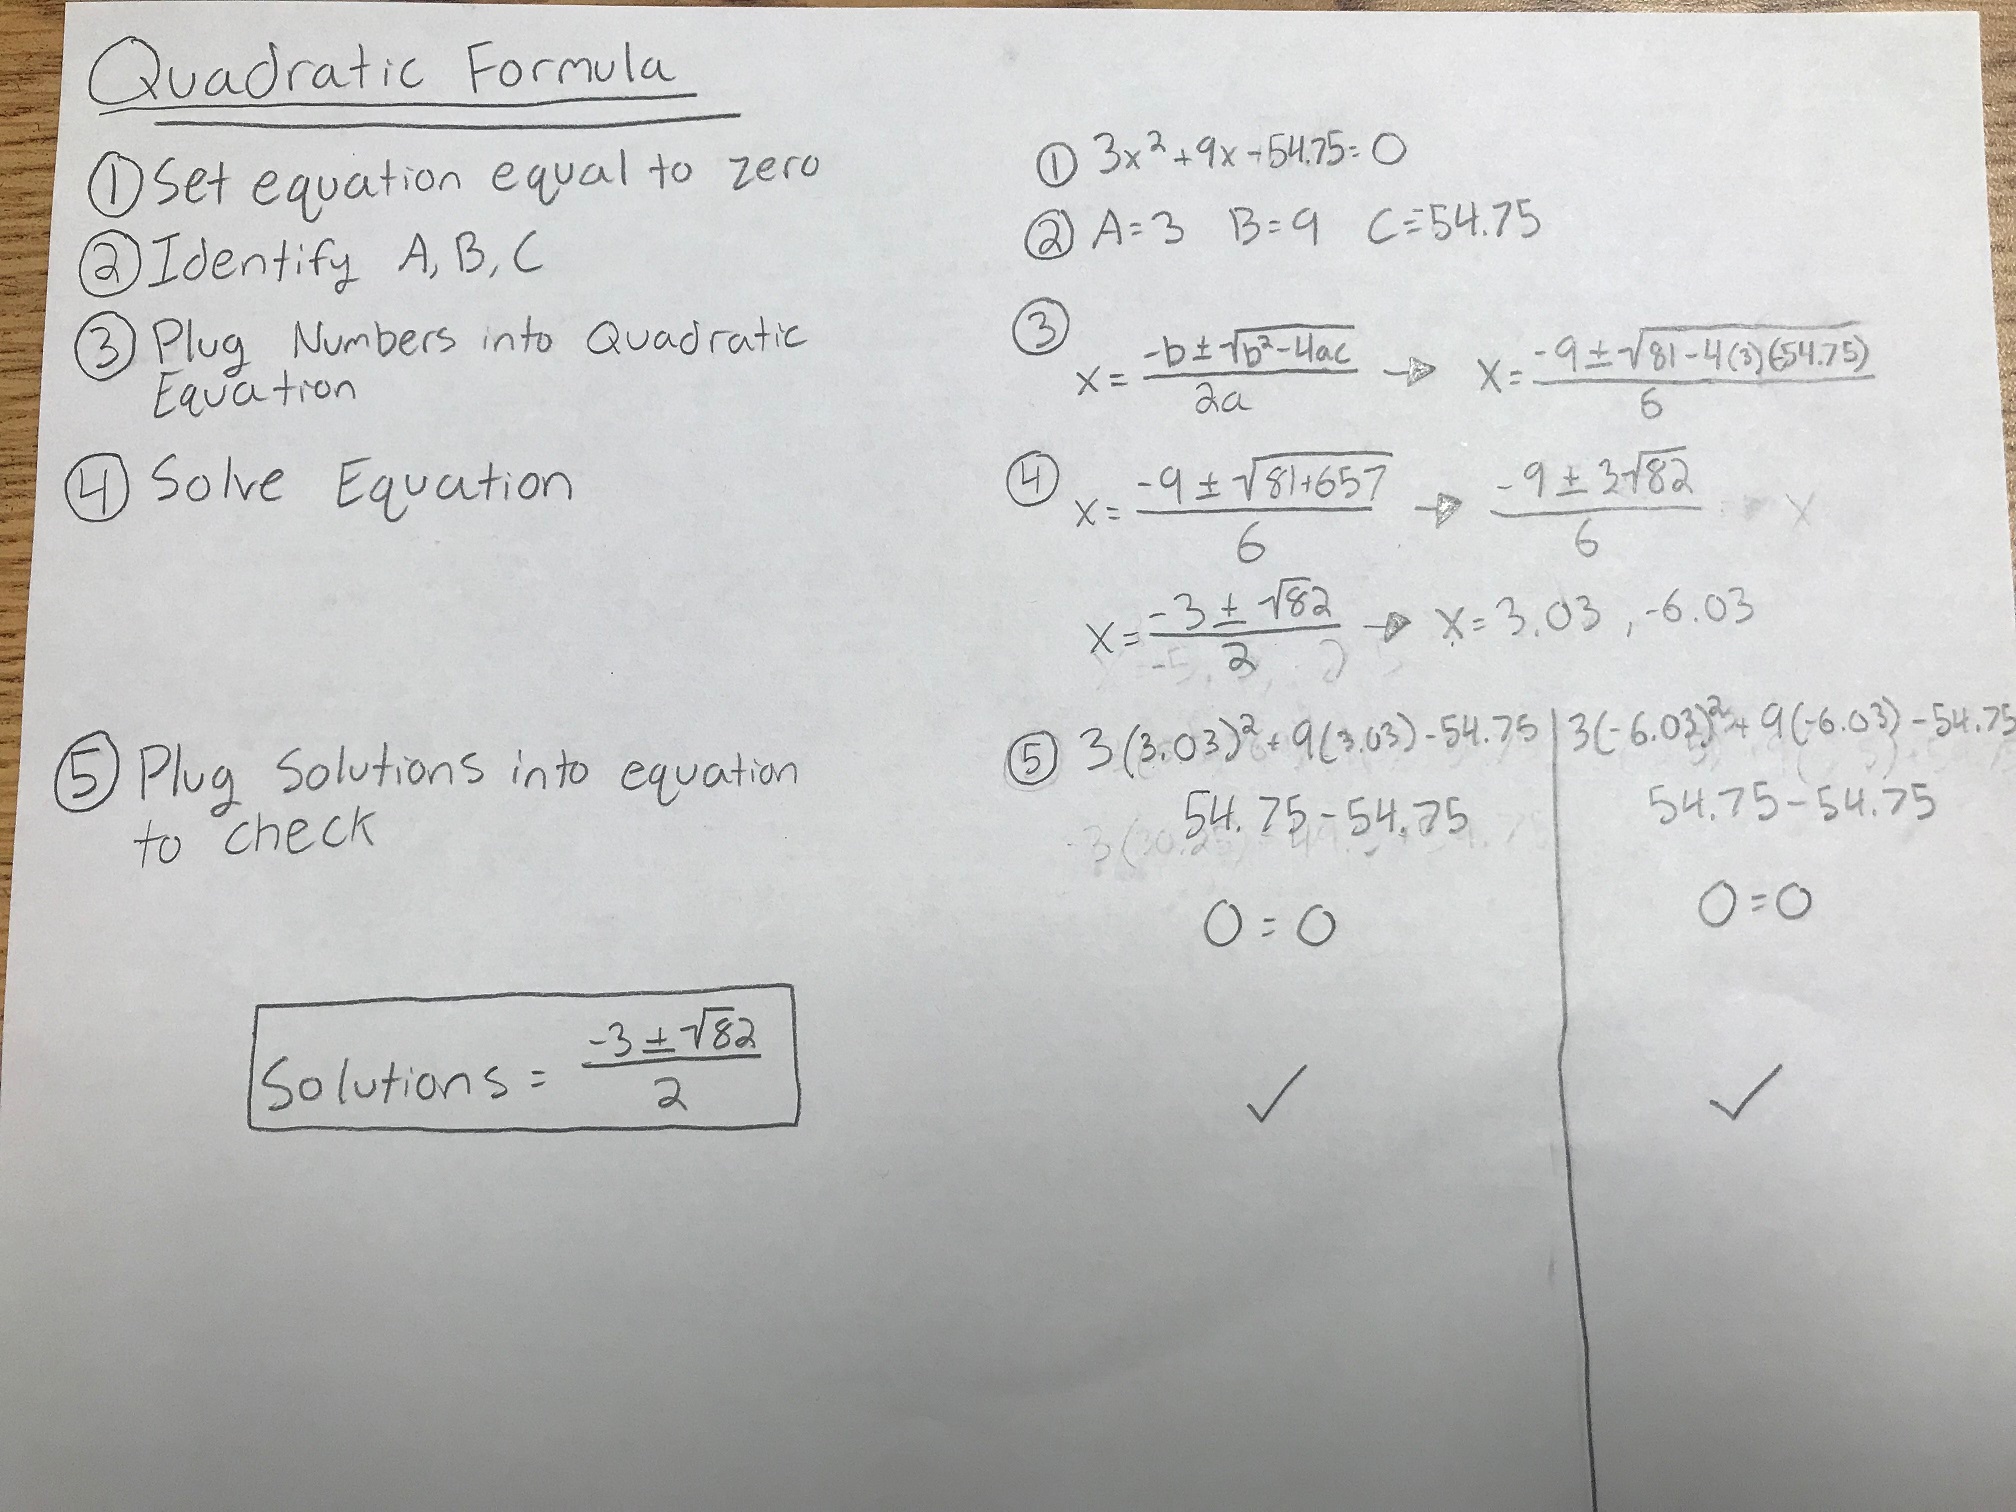 Quadratic Formula
① Set equation equal to zero
② Identify A, B, C
③ Plug Numbers into Quadratic
Equation
④ Solve Equation
⑤ Plug Solutions into equation
to check
Solutions = (-3 ± √82)/2
① 3x² + 9x - 54.75 = 0
② A = 3 B = 9 C = -54.75
③ x = (-b ± √(b² - 4ac))/2a → x = (-9 ± √(81 - 4(3)(-54.75)))/6
④ x = (-9 ± √(81 + 657))/6 → (-9 ± 3√82)/6
x = (-3 ± √82)/2 → x = 3.03, -6.03
⑤ 3(3.03)² + 9(3.03) - 54.75 | 3(-6.03)² + 9(-6.03) - 54.75
54.75 - 54.75 | 54.75 - 54.75
0 = 0 | 0 = 0
✓ | ✓